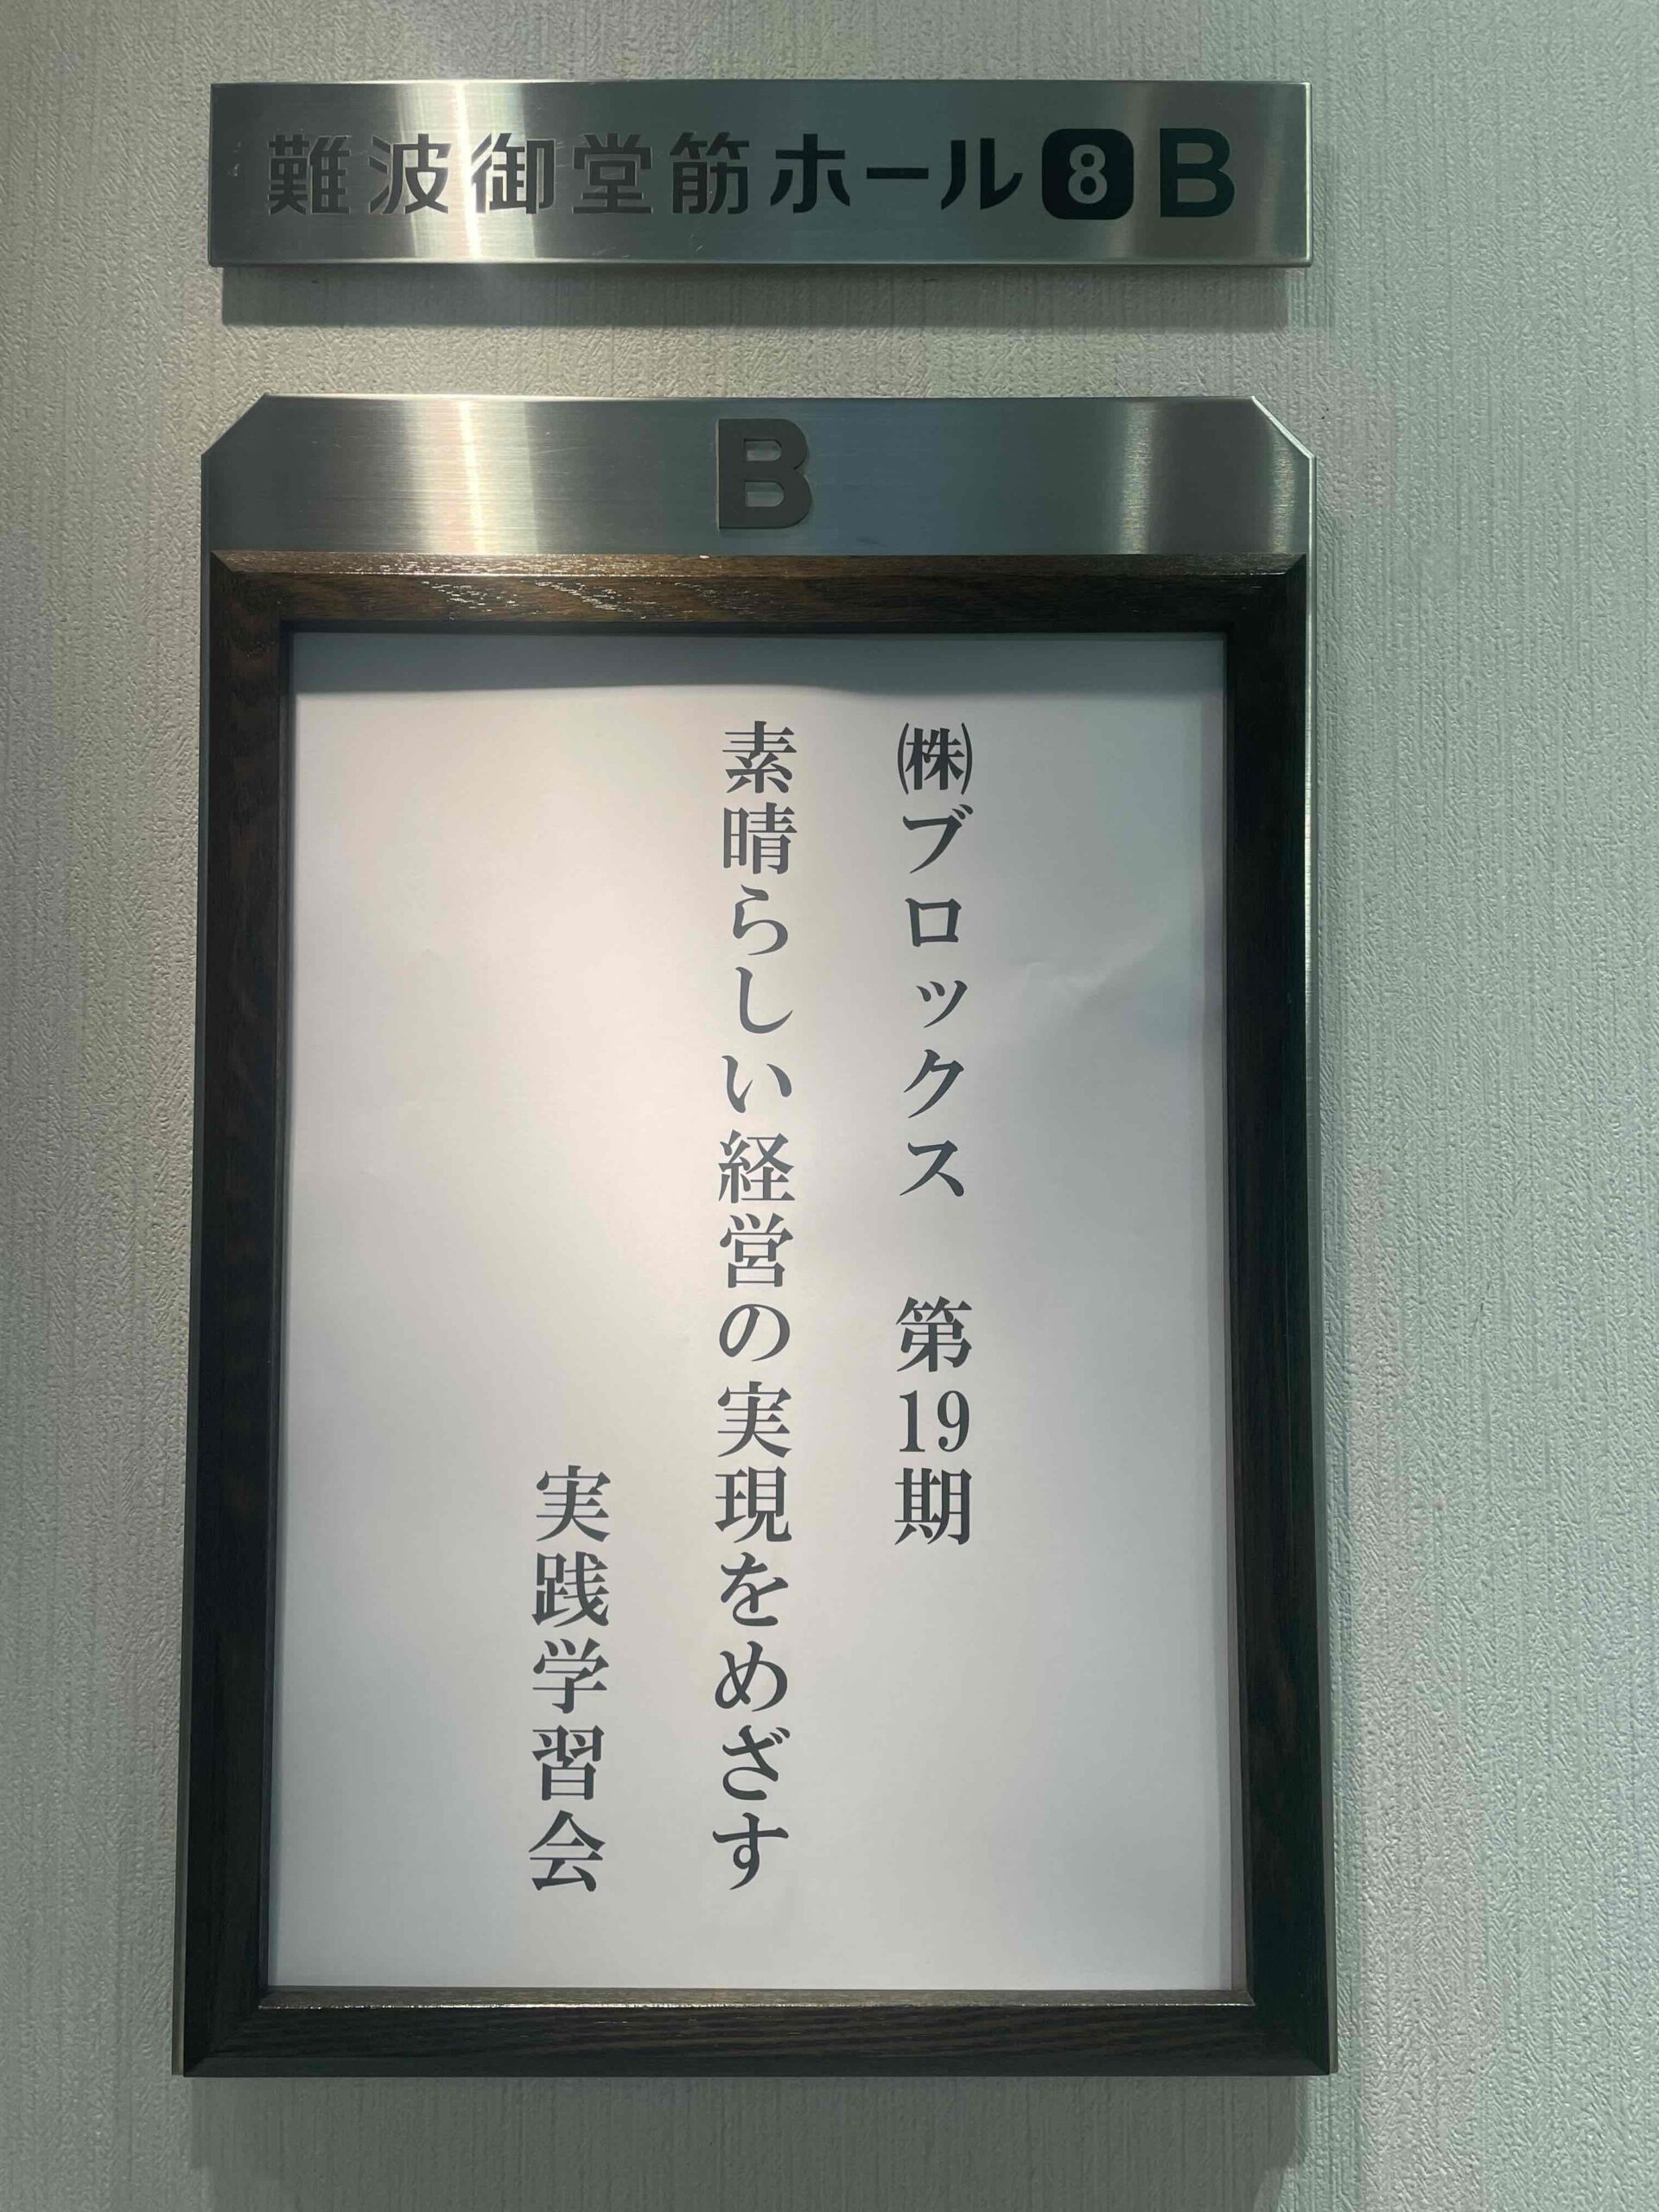 難波御堂筋ホール8B
B
㈱ブロックス　第19期
素晴らしい経営の実現をめざす
実践学習会